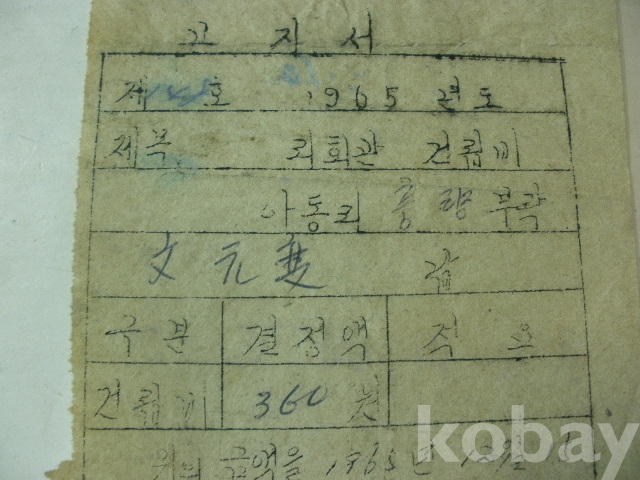 고지서
제 호 1965 년도
제목 리회관 건립비
아동리 중량 부락
文元燮 귀하
구분 결정액 적요
건립비 360 원
위의 금액을 1965년 12월
kobay